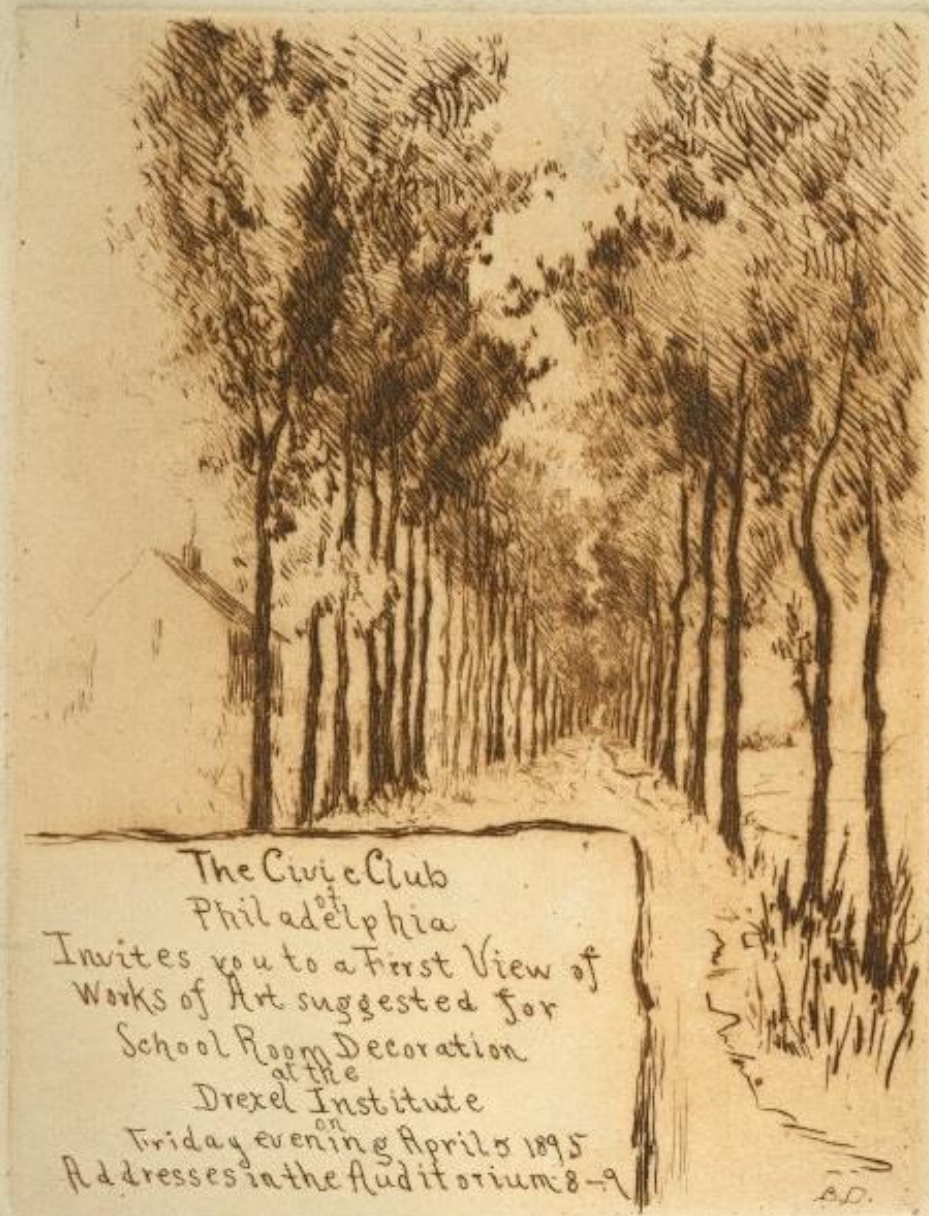 The Civic Club
of
Philadelphia
Invites you to a First View of
Works of Art suggested for
School Room Decoration
at the
Drexel Institute
on
Friday evening April 5 1895
Addresses in the Auditorium 8-9
B.D.